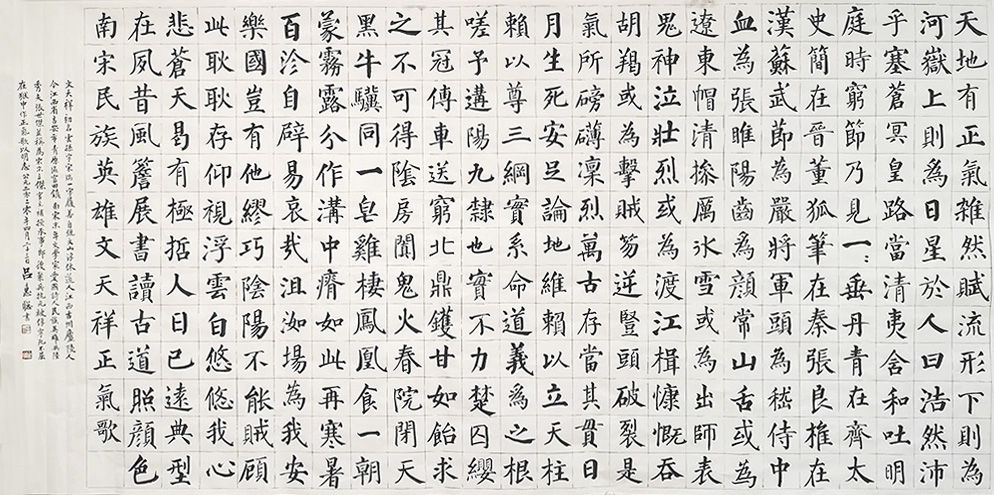 天地有正氣雜然賦流形下則為
河嶽上則為日星於人曰浩然沛
乎塞蒼冥皇路當清夷含和吐明
庭時窮節乃見一:垂丹青在齊太
史簡在晉董狐筆在秦張良椎在
漢蘇武節為嚴將軍頭為嵇侍中
血為張睢陽齒為顏常山舌或為
遼東帽清操厲冰雪或為出師表
鬼神泣壯烈或為渡江楫慷慨吞
胡羯或為擊賊笏逆豎頭破裂是
氣所磅礴凜烈萬古存當其貫日
月生死安足論地維賴以立天柱
賴以尊三綱實系命道義為之根
嗟予遘陽九隸也實不力楚囚纓
其冠傳車送窮北鼎鑊甘如飴求
之不可得陰房闃鬼火春院閉天
黑牛驥同一皂雞棲鳳凰食一朝
蒙霧露分作溝中瘠如此再寒暑
百沴自辟易哀哉沮洳場為我安
樂國豈有他繆巧陰陽不能賊顧
此耿耿存仰視浮雲白悠悠我心
悲蒼天曷有極哲人日已遠典型
在夙昔風簷展書讀古道照顏色
南宋民族英雄文天祥正氣歌
文天祥初名雲孫字宋瑞一字履善自號文山浮休道人江西吉州廬陵人
今江西省吉安市青原區富田鎮南宋末年文學家愛國詩人民族英雄與陸
秀夫張世傑並稱為宋末三傑
在獄中作正氣歌以明志